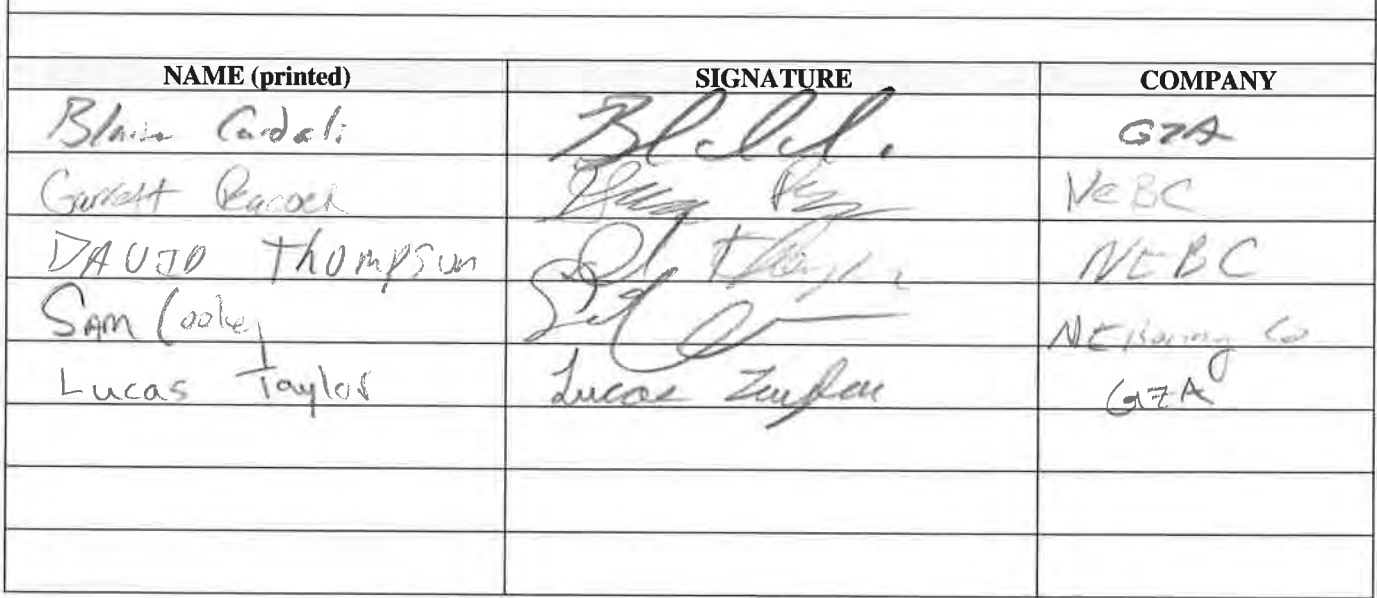 NAME (printed) SIGNATURE COMPANY
Blaise Cardali GZA
Garrett Peacock NeBC
DAVID Thompson NEBC
SAM Cooley NE Boring Co
Lucas Taylor Lucas Taylor GZA